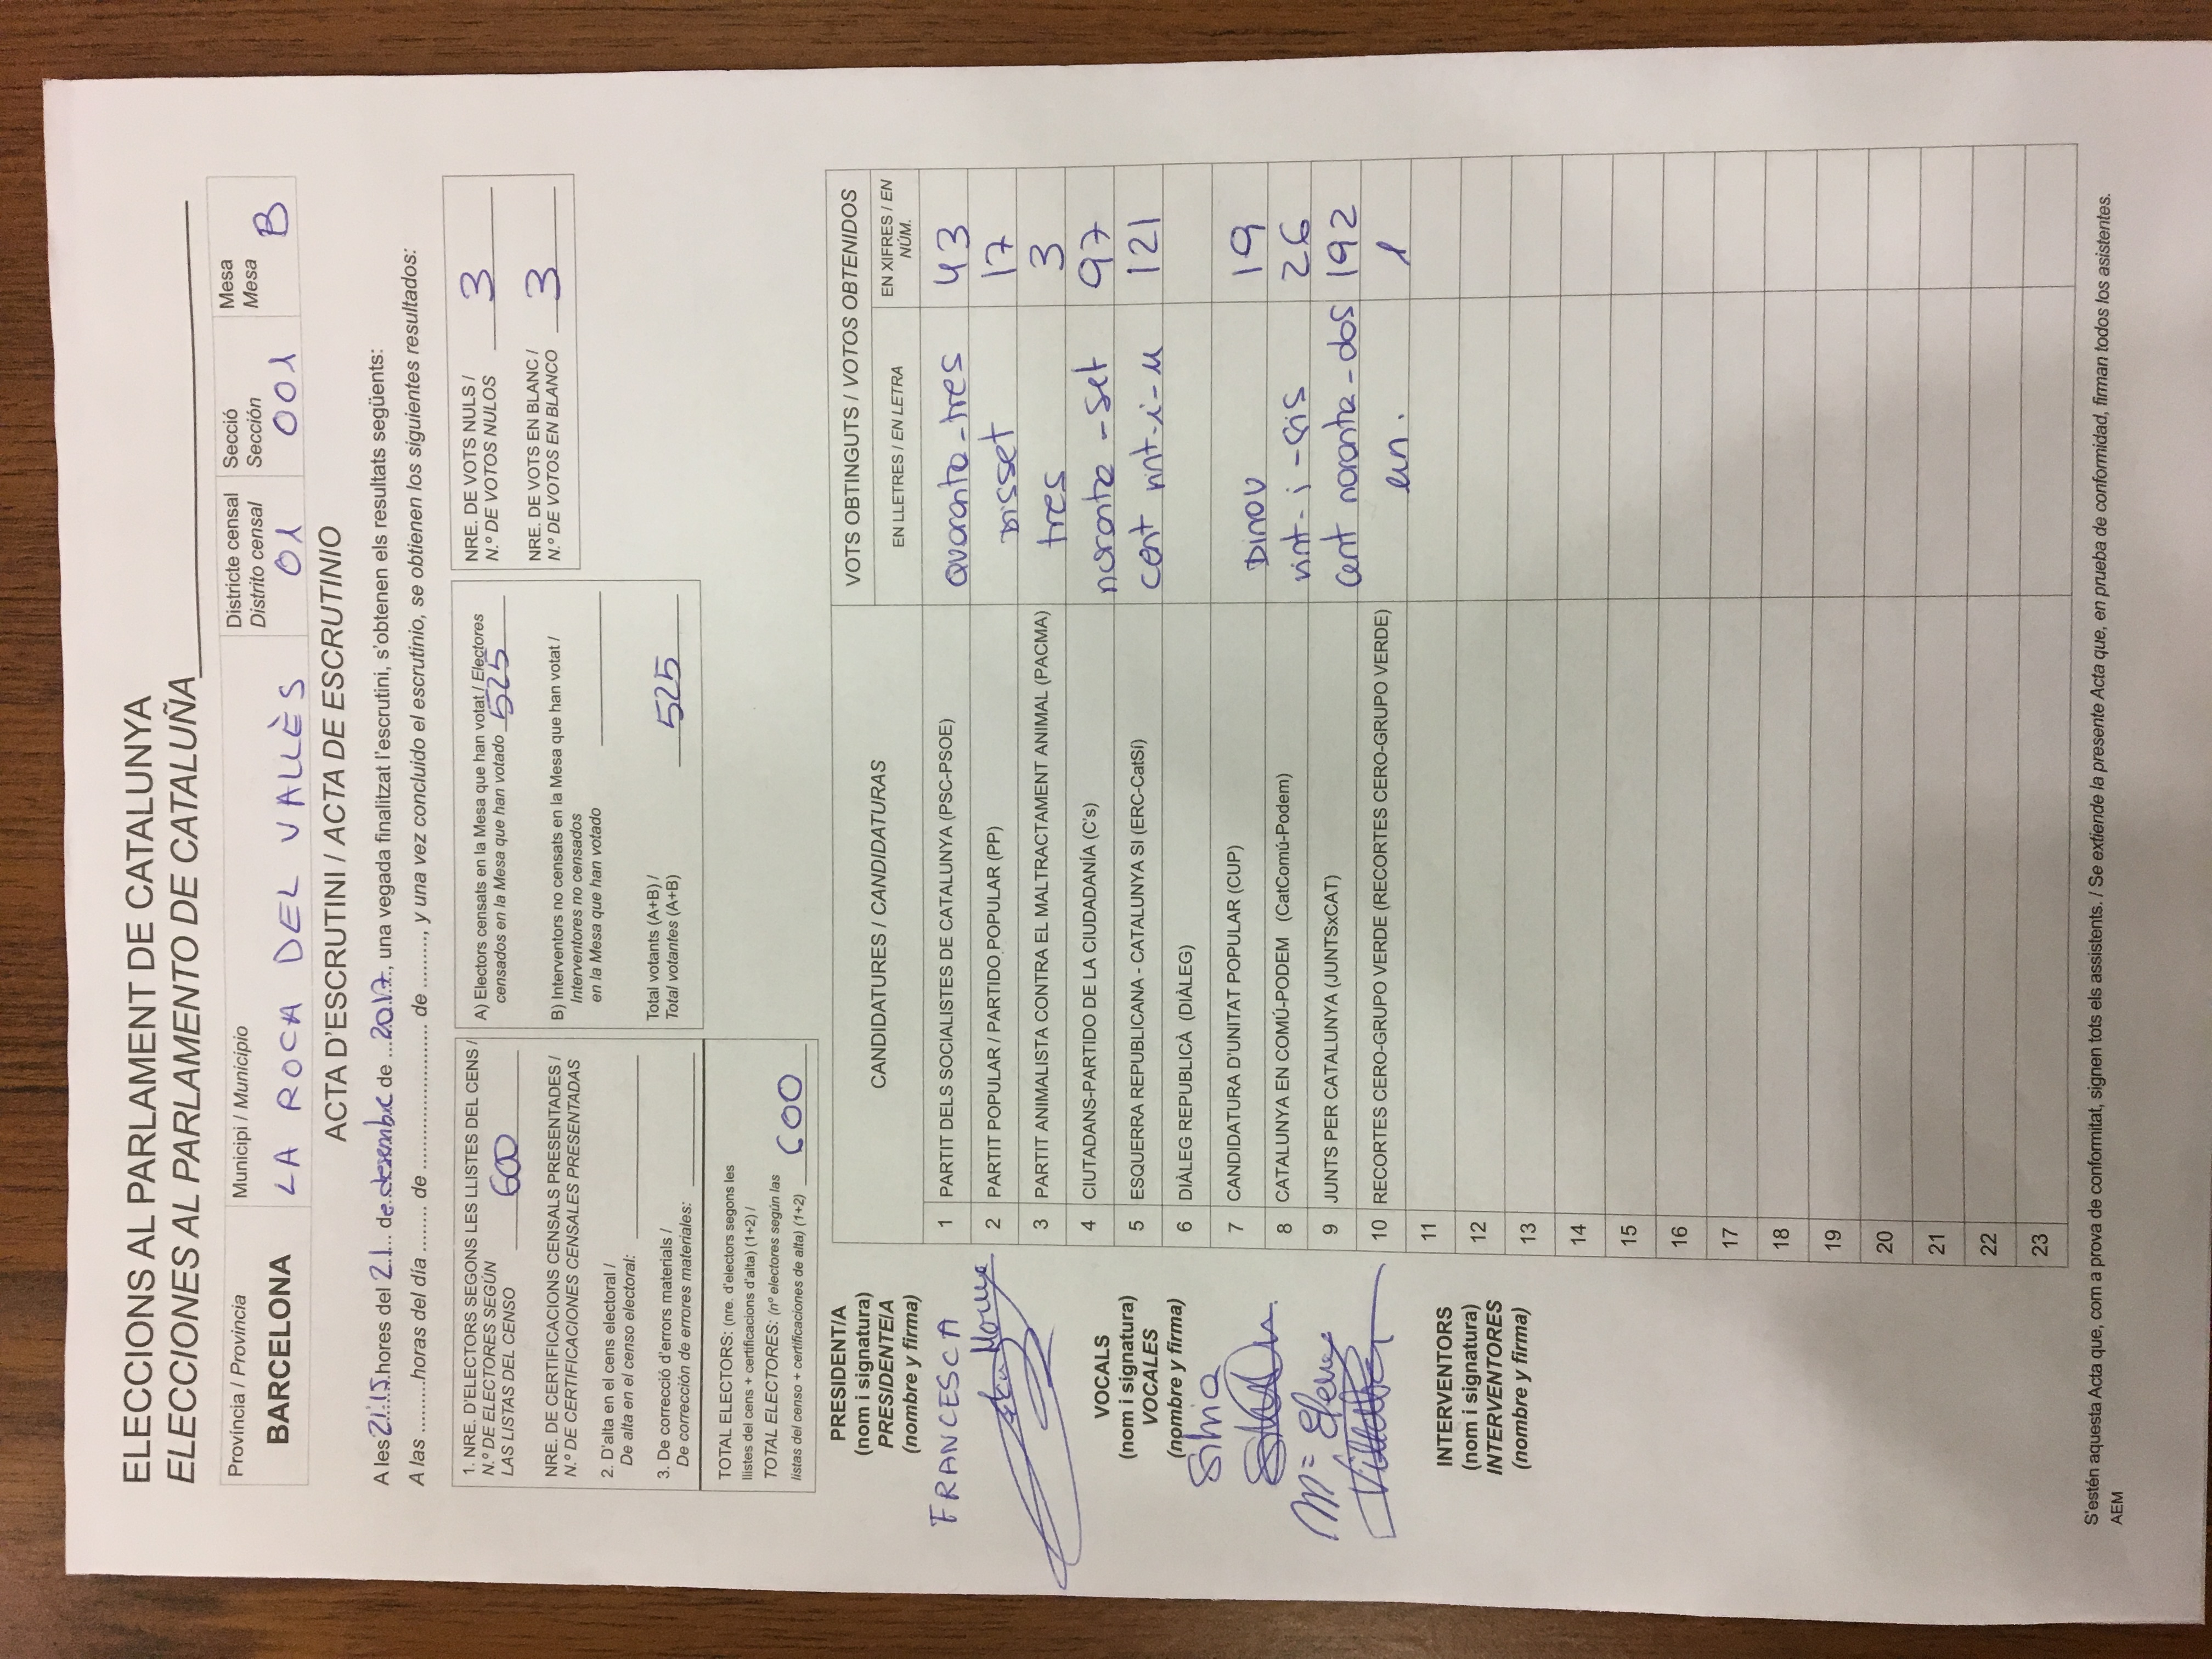 ELECCIONS AL PARLAMENT DE CATALUNYA
ELECCIONES AL PARLAMENTO DE CATALUÑA
Provincia / Provincia
BARCELONA
Municipi / Municipio
LA ROCA DEL VALLÈS
Districte censal
Distrito censal
01
Secció
Sección
001
Mesa
Mesa
B
ACTA D'ESCRUTINI / ACTA DE ESCRUTINIO
A les 21:15 hores del 21 de desembre de 2017, una vegada finalitzat l'escrutini, s'obtenen els resultats següents:
A las ..........horas del día ......... de ........................ de ........., y una vez concluido el escrutinio, se obtienen los siguientes resultados:
1. NRE. D'ELECTORS SEGONS LES LLISTES DEL CENS /
N.º DE ELECTORES SEGÚN
LAS LISTAS DEL CENSO 600
NRE. DE CERTIFICACIONS CENSALS PRESENTADES /
N.º DE CERTIFICACIONES CENSALES PRESENTADAS
2. D'alta en el cens electoral /
De alta en el censo electoral:
3. De correcció d'errors materials /
De corrección de errores materiales:
TOTAL ELECTORS: (nre. d'electors segons les
llistes del cens + certificacions d'alta) (1+2) /
TOTAL ELECTORES: (nº electores según las
listas del censo + certificaciones de alta) (1+2) 600
A) Electors censats en la Mesa que han votat / Electores
censados en la Mesa que han votado 525
B) Interventors no censats en la Mesa que han votat /
Interventores no censados
en la Mesa que han votado
Total votants (A+B) /
Total votantes (A+B) 525
NRE. DE VOTS NULS /
N.º DE VOTOS NULOS 3
NRE. DE VOTS EN BLANC /
N.º DE VOTOS EN BLANCO 3
PRESIDENT/A
(nom i signatura)
PRESIDENTE/A
(nombre y firma)
FRANCESCA
VOCALS
(nom i signatura)
VOCALES
(nombre y firma)
Silvia
Mª Elena
INTERVENTORS
(nom i signatura)
INTERVENTORES
(nombre y firma)
CANDIDATURES / CANDIDATURAS
VOTS OBTINGUTS / VOTOS OBTENIDOS
EN LLETRES / EN LETRA
EN XIFRES / EN NÚM.
1 PARTIT DELS SOCIALISTES DE CATALUNYA (PSC-PSOE) quaranta-tres 43
2 PARTIT POPULAR / PARTIDO POPULAR (PP) Disset 17
3 PARTIT ANIMALISTA CONTRA EL MALTRACTAMENT ANIMAL (PACMA) tres 3
4 CIUTADANS-PARTIDO DE LA CIUDADANÍA (C's) noranta-set 97
5 ESQUERRA REPUBLICANA - CATALUNYA SI (ERC-CatSí) cent vint-i-u 121
6 DIÀLEG REPUBLICÀ (DIÀLEG)
7 CANDIDATURA D'UNITAT POPULAR (CUP) Dinou 19
8 CATALUNYA EN COMÚ-PODEM (CatComú-Podem) vint-i-sis 26
9 JUNTS PER CATALUNYA (JUNTSxCAT) Cent noranta-dos 192
10 RECORTES CERO-GRUPO VERDE (RECORTES CERO-GRUPO VERDE) un. 1
11
12
13
14
15
16
17
18
19
20
21
22
23
S'estén aquesta Acta que, com a prova de conformitat, signen tots els assistents. / Se extiende la presente Acta que, en prueba de conformidad, firman todos los asistentes.
AEM